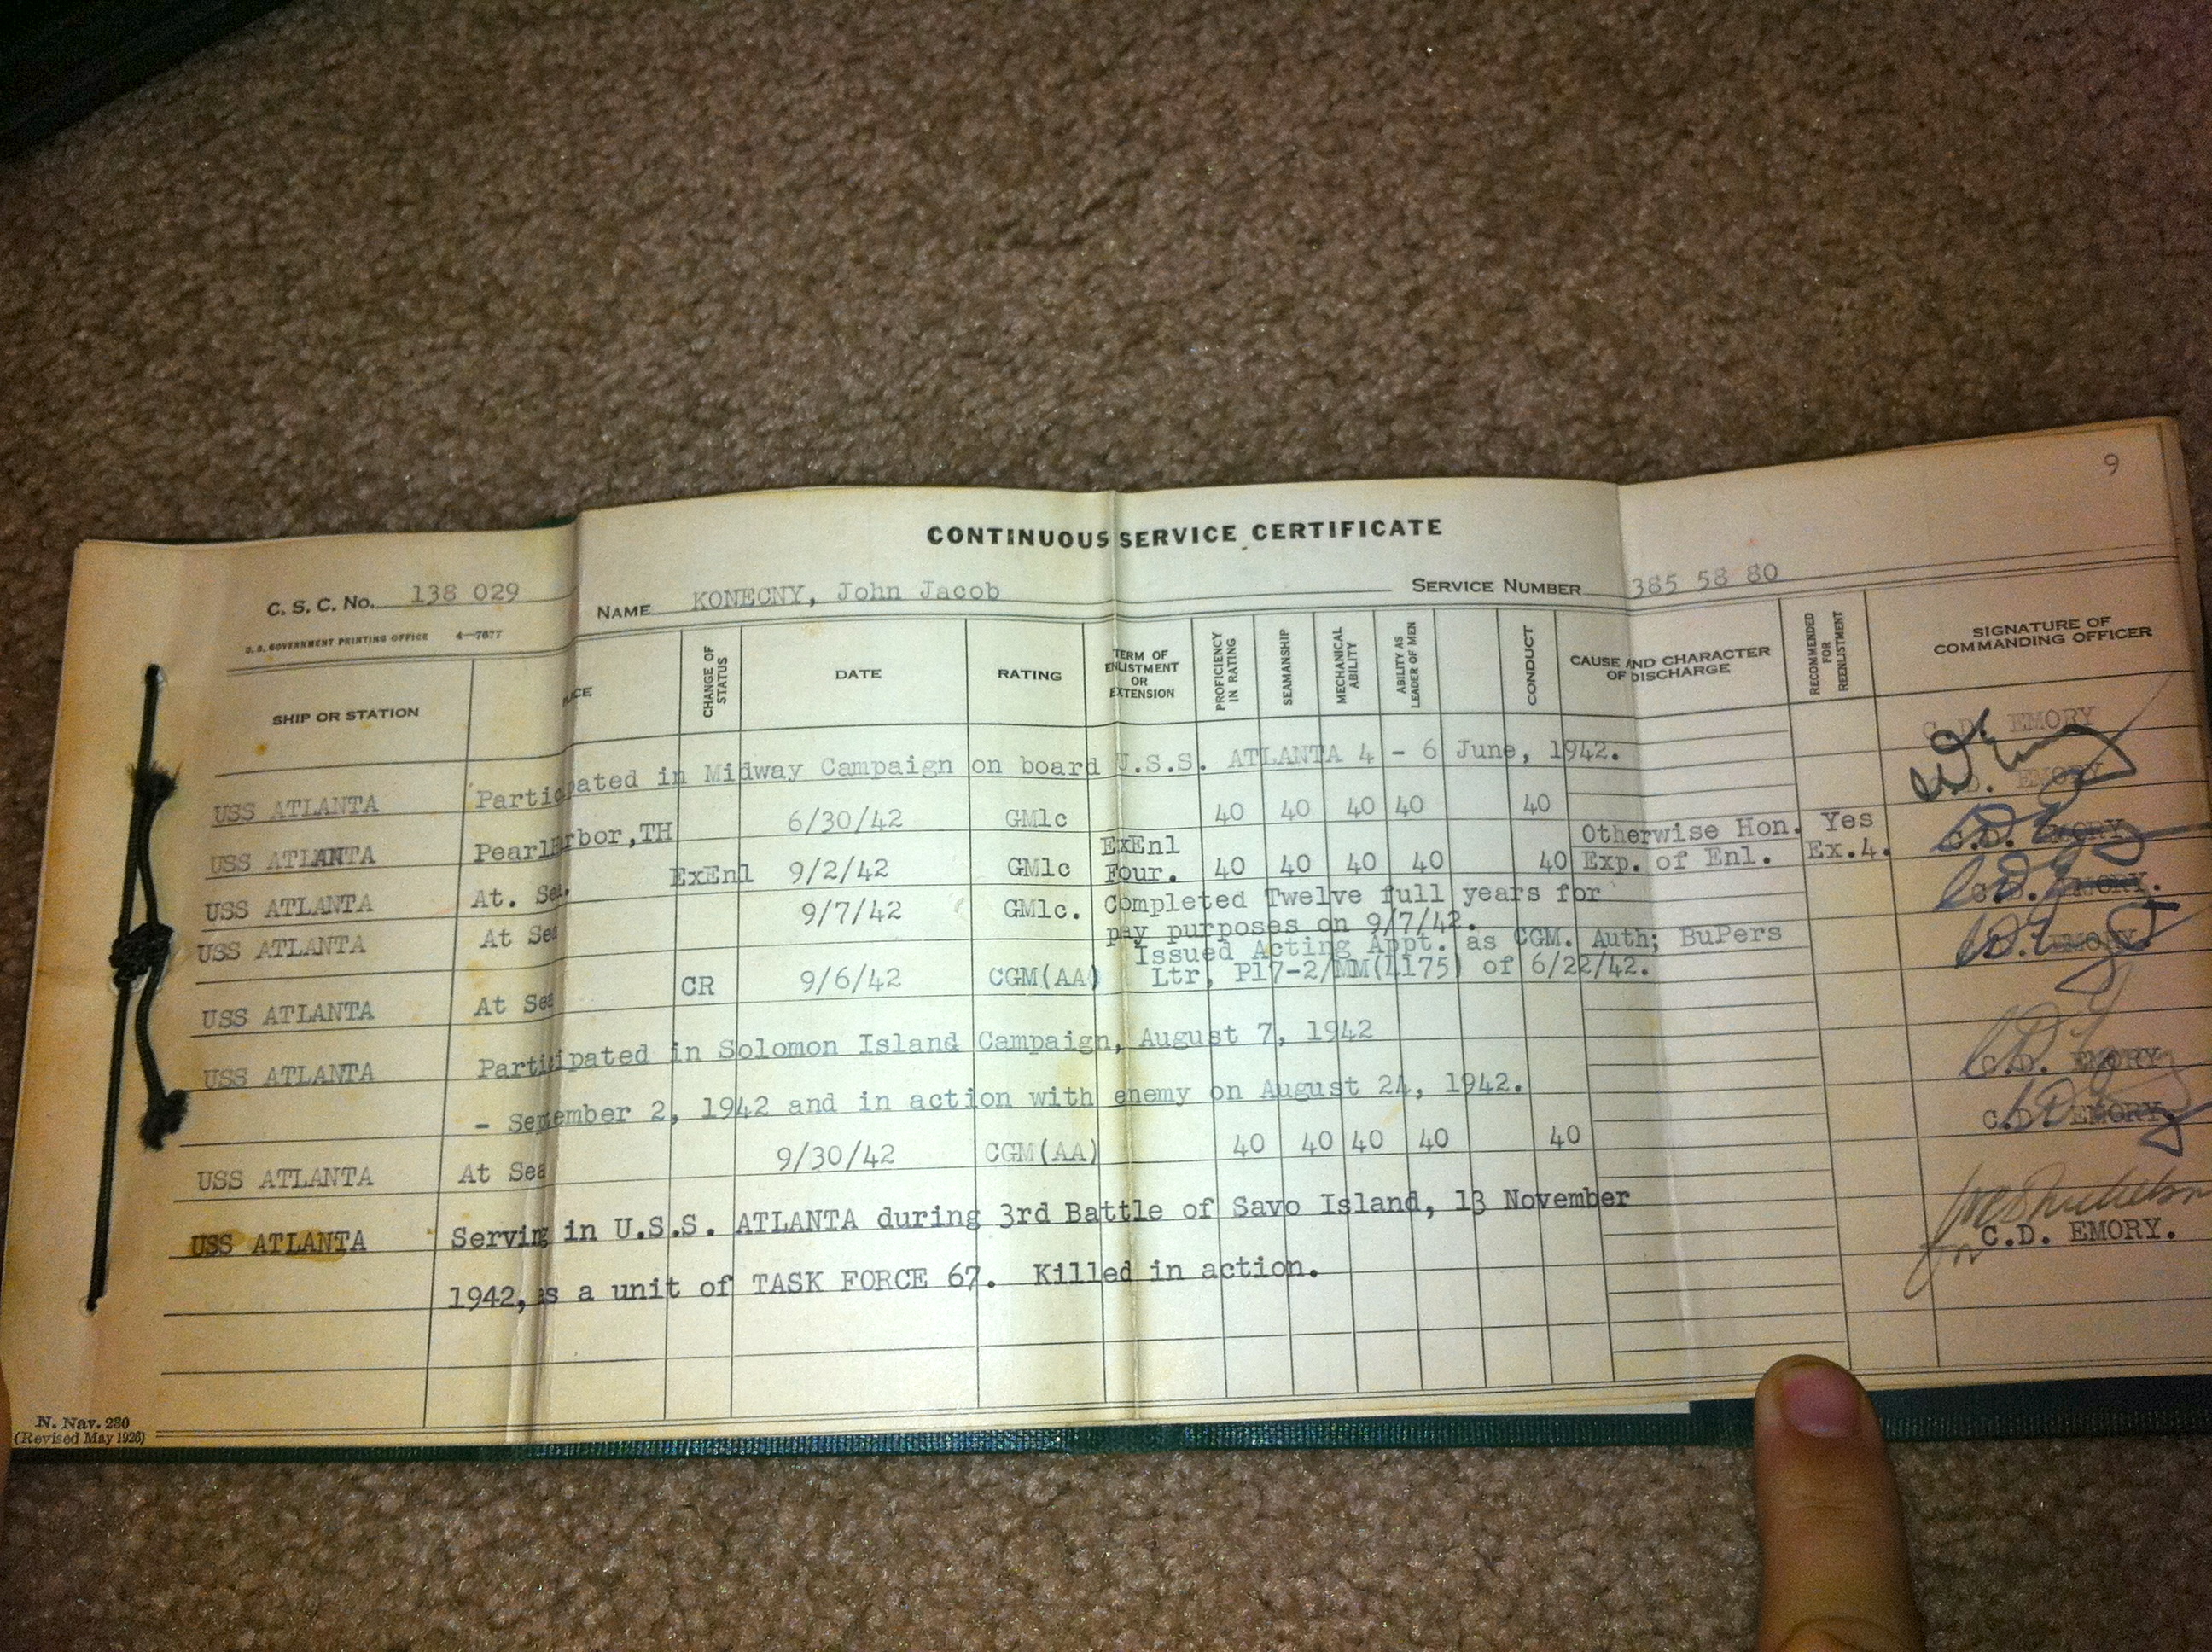 9
CONTINUOUS SERVICE CERTIFICATE
C. S. C. No. 138 029 NAME KONECNY, John Jacob SERVICE NUMBER 385 58 80
U. S. GOVERNMENT PRINTING OFFICE 4—7677
SHIP OR STATION
CHANGE OF STATUS
DATE
RATING
TERM OF ENLISTMENT OR EXTENSION
PROFICIENCY IN RATING
SEAMANSHIP
MECHANICAL ABILITY
ABILITY AS LEADER OF MEN
CONDUCT
CAUSE AND CHARACTER OF DISCHARGE
RECOMMENDED FOR REENLISTMENT
SIGNATURE OF COMMANDING OFFICER
USS ATLANTA Participated in Midway Campaign on board U.S.S. ATLANTA 4 - 6 June, 1942. C.D. EMORY
USS ATLANTA Pearl Harbor,TH 6/30/42 GM1c 40 40 40 40 40 C.D. EMORY
USS ATLANTA At. Sea. ExEnl 9/2/42 GM1c ExEnl Four. 40 40 40 40 40 Otherwise Hon. Exp. of Enl. Yes Ex.4. C.D. EMORY
USS ATLANTA At Sea 9/7/42 GM1c. Completed Twelve full years for C.D. EMORY.
pay purposes on 9/7/42.
Issued Acting Appt. as CGM. Auth; BuPers
USS ATLANTA At Sea CR 9/6/42 CGM(AA) Ltr, P17-2/MM(4175) of 6/22/42. C.D. EMORY.
USS ATLANTA Participated in Solomon Island Campaign, August 7, 1942
- September 2, 1942 and in action with enemy on August 24, 1942. C.D. EMORY
USS ATLANTA At Sea 9/30/42 CGM(AA) 40 40 40 40 40 C.D. EMORY.
USS ATLANTA Serving in U.S.S. ATLANTA during 3rd Battle of Savo Island, 13 November
1942, as a unit of TASK FORCE 67. Killed in action. for C.D. EMORY.
N. Nav. 280
(Revised May 1926)